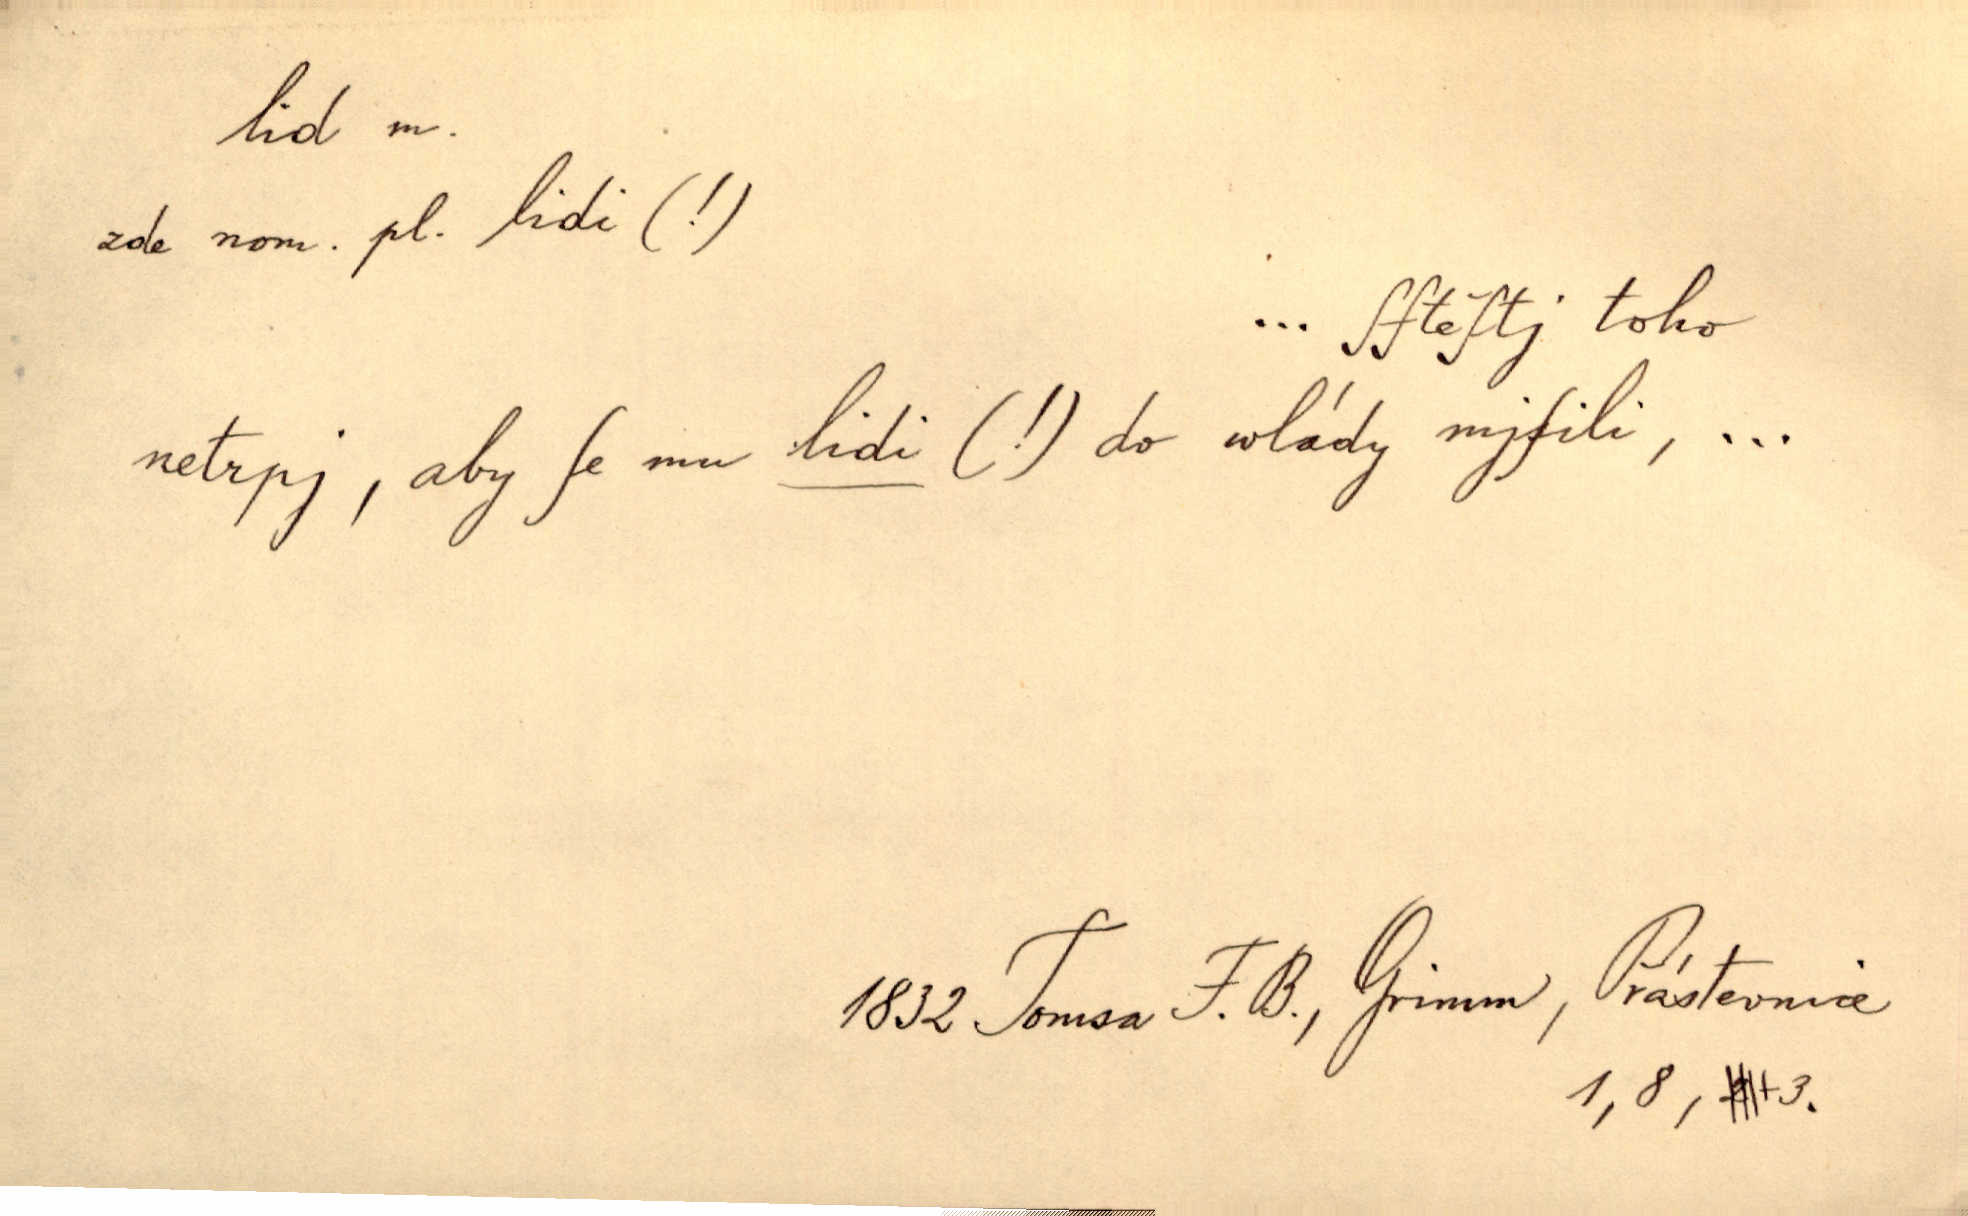 lid m.
zde nom. pl. lidi (!)
... ſſtěſtj toho
netrpj, aby ſe mu lidi (!) do wlády mjſili, ...
1832 Tomsa F. B., Grimm, Prástevnice
1, 8, +3.